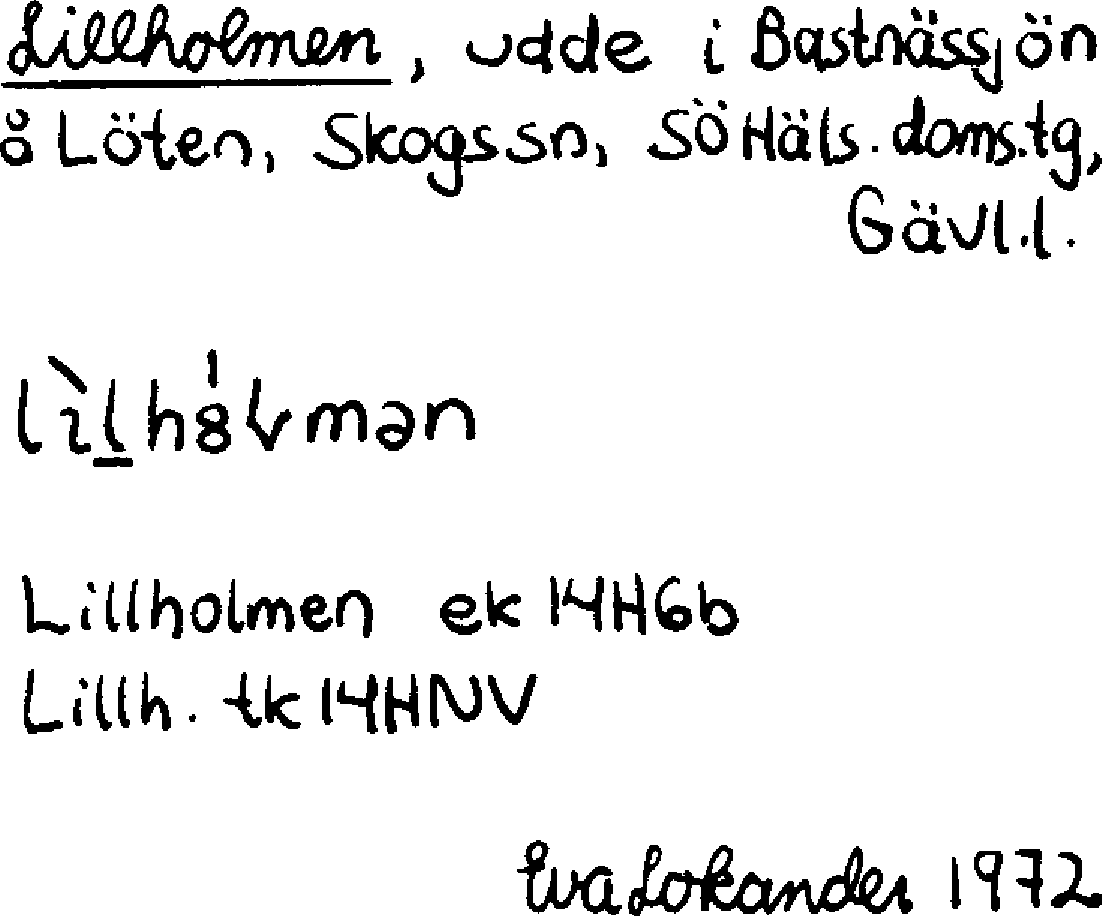 Lillholmen, udde i Bastnässjön
å Löten, Skogs sn, SÖ Häls. doms.tg,
Gävl.l.
Lillholmen ek 14H6b
Lillh. tk 14HNV
Eva Lokander 1972